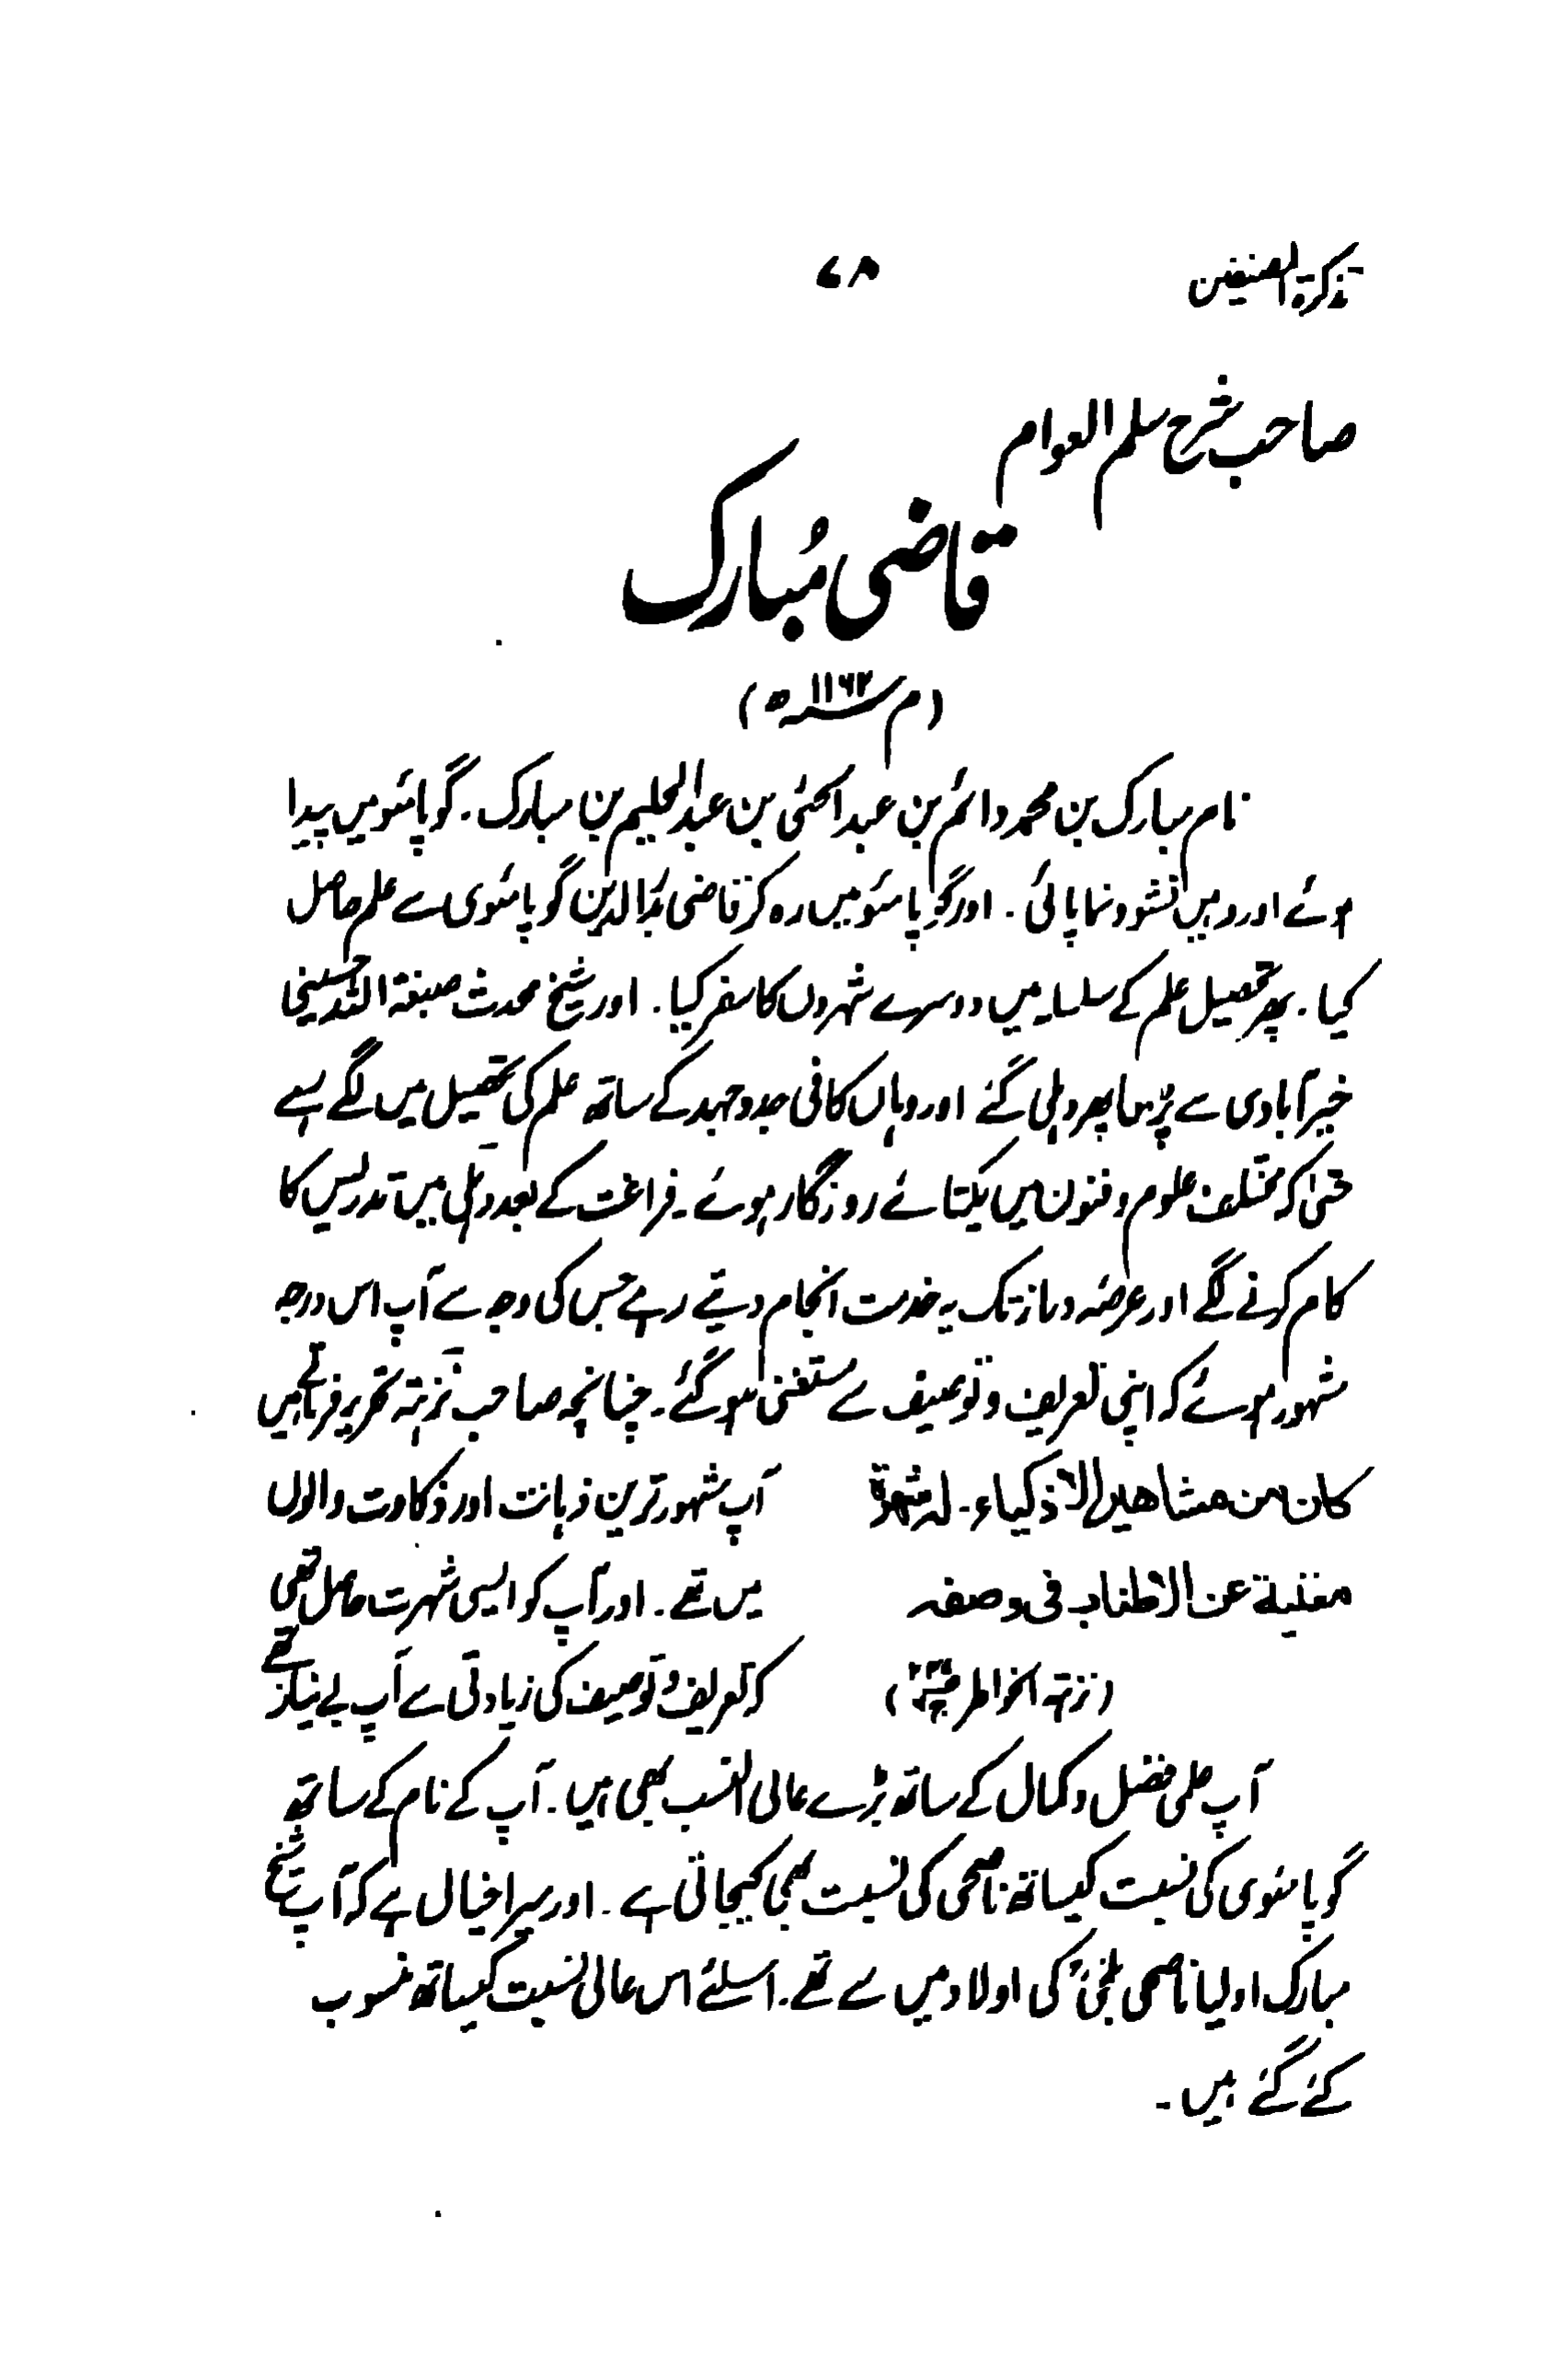 تذکرۃ المصنفین ۷۸
صاحب شرح سلم العوام
قاضی مُبارک
(م ۱۱۶۲ھ)
نام مبارک بن محمد دائم بن عبد الحئی بن عبد الحلیم بن مبارک۔ گوپامئو میں پیدا
ہوئے اور وہیں نشوونما پائی۔ اور گوپامئو میں رہ کر قاضی بدرالدین گوپامئوی سے علم حاصل
کیا۔ پھر تحصیل علم کے سلسلہ میں دوسرے شہروں کا سفر کیا۔ اور شیخ محدث صبغۃ اللہ حسینی
خیرآبادی سے پڑھا پھر دہلی گئے اور وہاں کافی جدوجہد کے ساتھ علم کی تحصیل میں لگے رہے
حتیٰ کہ مختلف علوم و فنون میں یکتائے روزگار ہوئے۔ فراغت کے بعد دہلی میں تدریس کا
کام کرنے لگے اور عرصہ دراز تک یہ خدمت انجام دیتے رہے جس کی وجہ سے آپ اس درجہ
مشہور ہوئے کہ اپنی تعریف و توصیف سے مستغنی ہوگئے۔ چنانچہ صاحب نزہتہ تحریر فرماتے ہیں
کان من مشاهیر الاذکیاء۔ له شهرة آپ مشہور ترین ذہانت اور ذکاوت والوں
مغنیة عن الاطناب فی وصفه میں تھے۔ اور آپ کو ایسی شہرت حاصل تھی
(نزہتہ الخواطر) کہ تعریف و توصیف کی زیادتی سے آپ بے نیاز تھے
آپ علمی فضل و کمال کے ساتھ بڑے عالی النسب بھی ہیں۔ آپ کے نام کے ساتھ
گوپامئوی کی نسبت کیساتھ ناصحی کی نسبت بھی کیجاتی ہے۔ اور میرا خیال ہے کہ آپ شیخ
مبارک اولیا ناصحی بلخیؒ کی اولاد میں سے تھے۔ اسلئے اس عالی نسبت کیساتھ منسوب
کئے گئے ہیں۔